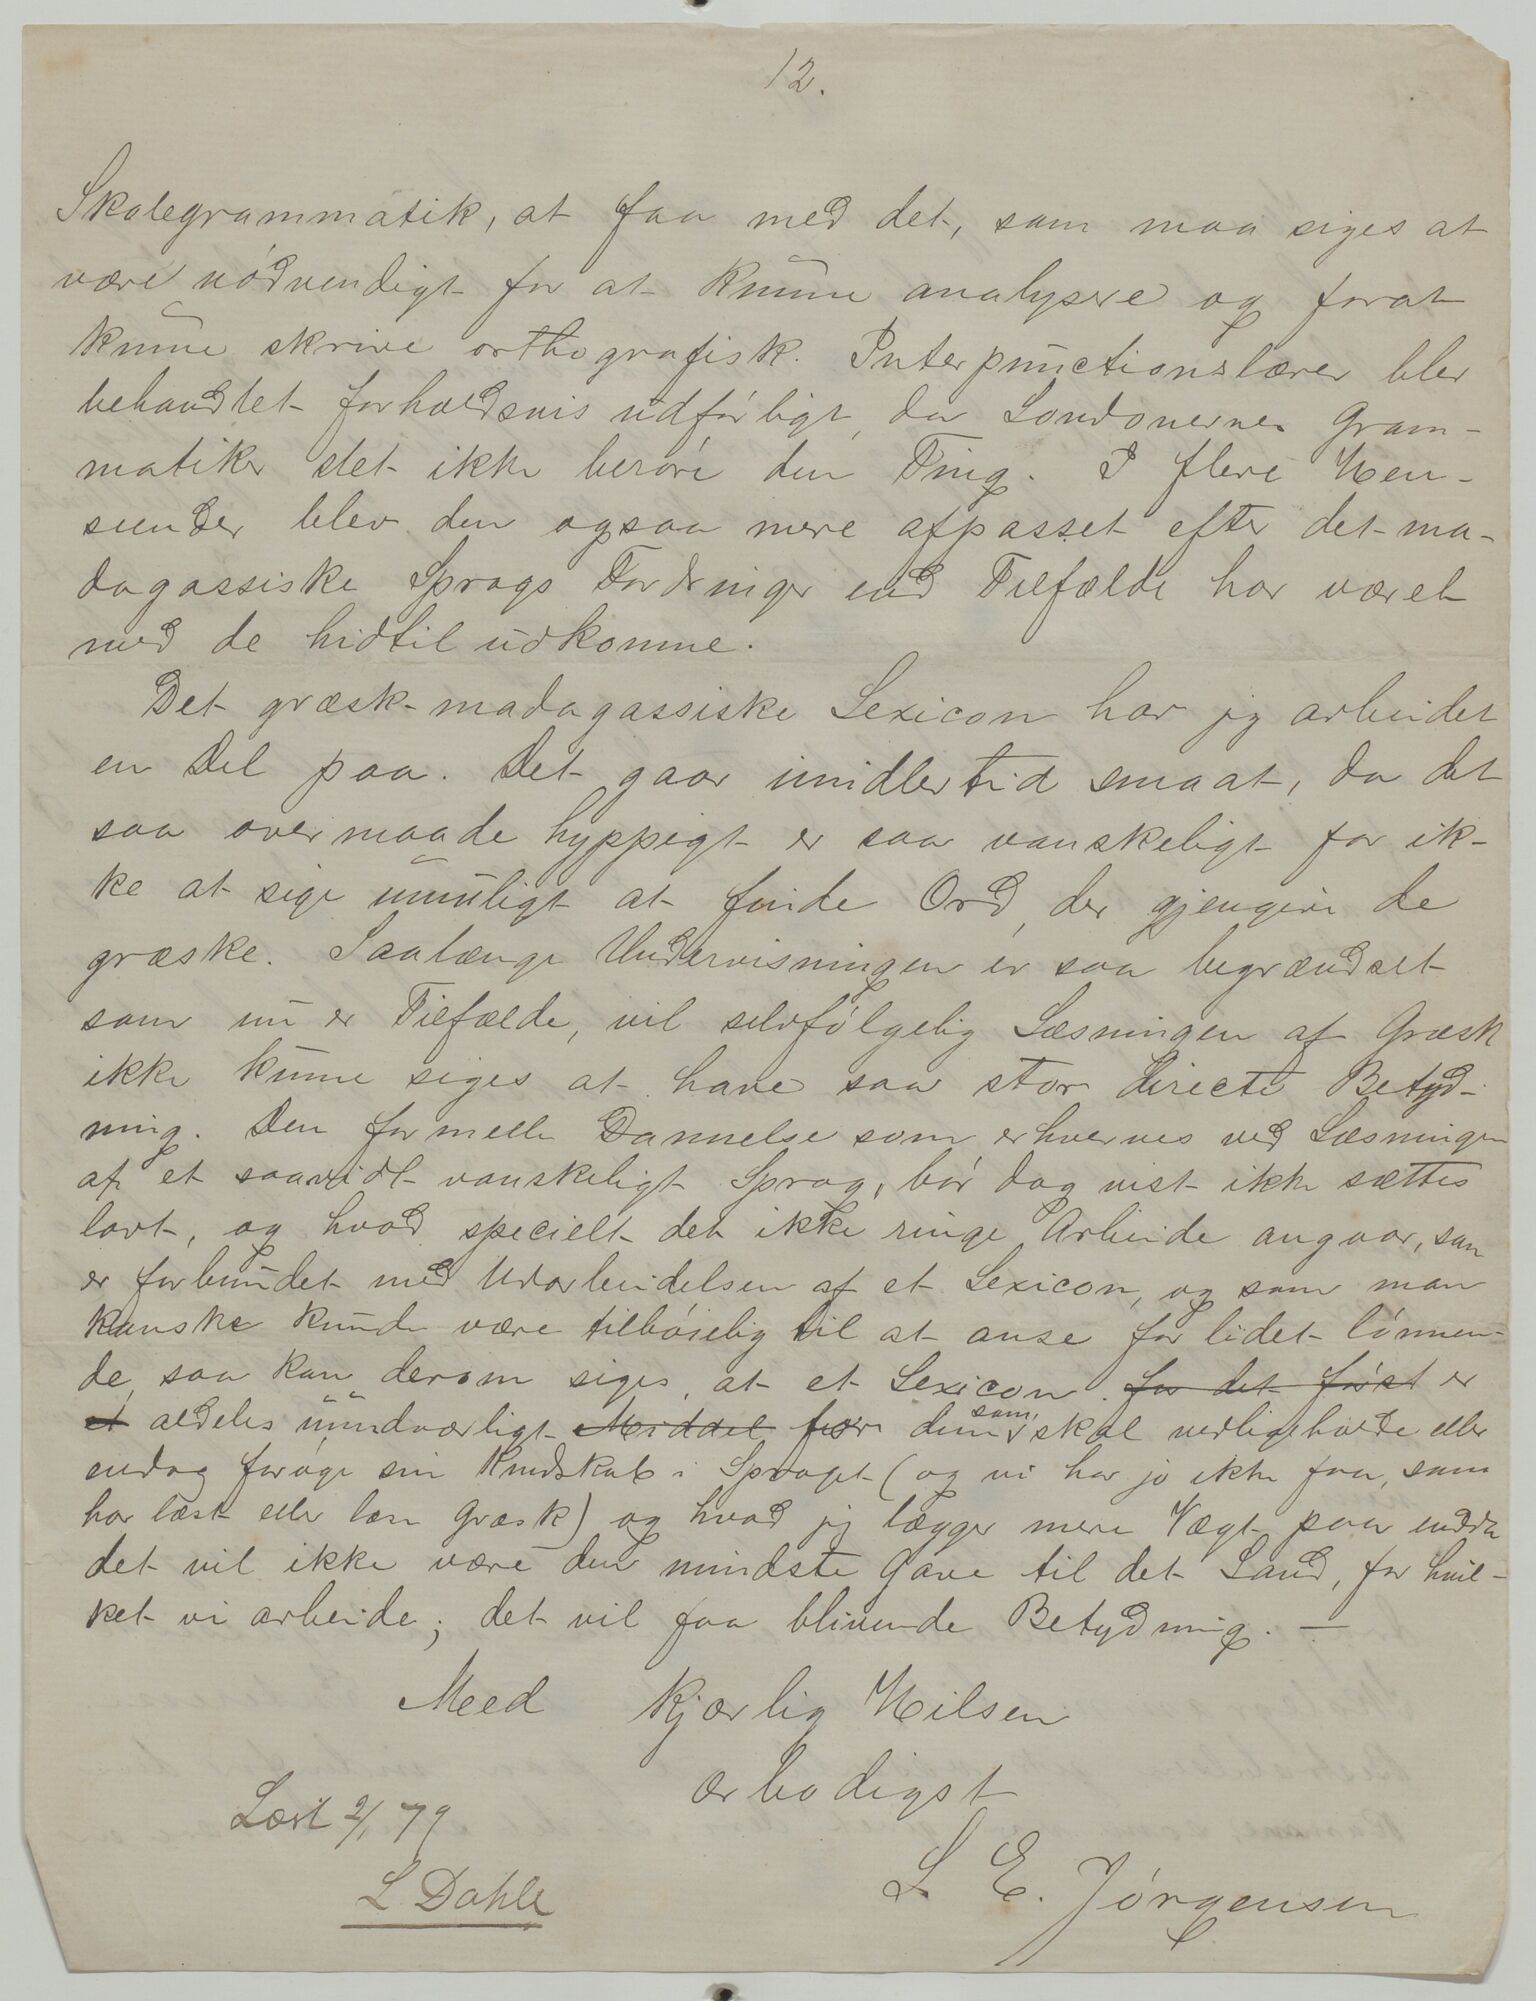 12.
Skolegrammatik, at faa med det, som maa siges at
være nödvendigt for at kunne analysere og forat
kunne skrive orthografisk. Interpunctionslæren blev
behandlet forholdsvis udförligt, da Londonernes Gram-
matiker slet ikke beröre den Ting. I flere Hen-
seender blev den ogsaa mere afpasset efter det ma-
dagassiske Sprogs Fordringer end Tilfælde har været
med de hidtil udkomne.
Det græsk-madagassiske Lexicon har jg arbeidet
en Del paa. Det gaar imidlertid smaat, da det
saa overmaade hyppigt er saa vanskeligt for ik-
ke at sige umuligt at finde Ord, der gjengive de
græske. Saalænge Undervisningen er saa begrændset
som nu er Tilfælde, vil selvfölgelig Læsningen af Græsk
ikke kunne siges at have saa stor directe Betyd-
ning. Den formelle Dannelse som erhverves ved Læsningen
af et saavidt vanskeligt Sprog, bör dog vist ikke sættes
lavt, og hvad specielt det ikke ringe Arbeide angaar, som
er forbundet med Udarbeidelsen af et Lexicon, og som man
kanske kunde være tilböielig til at anse for lidet lönnen-
de, saa kan derom siges, at et Lexicon for det först er
et aldeles uundværligt Middel for den som skal vedligeholde eller
endog foröge sin Kundskab i Sproget (og vi har jo ikke faa, som
har læst eller læse Græsk) og hvad jg lægger mere Vægt paa endda
det vil ikke være den mindste Gave til det Land, for hvil-
ket vi arbeide; det vil faa blivende Betydning. —
Med kjærlig Hilsen
ærbödigst
L. E. Jörgensen
Læst 2/1 79
L Dahle